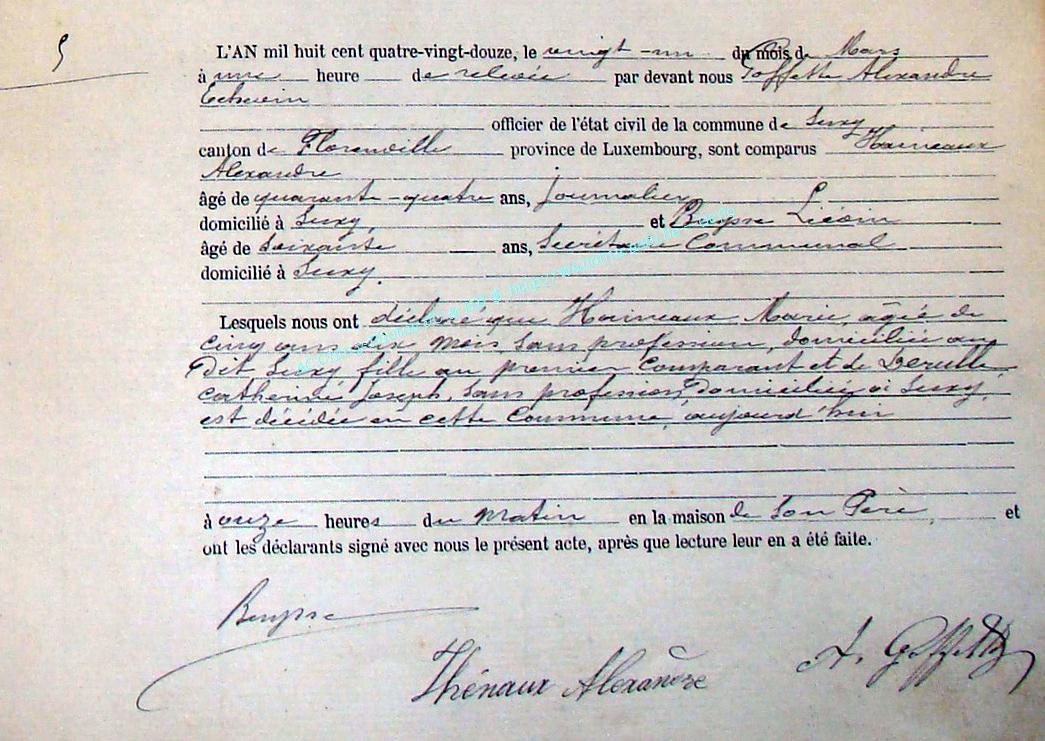 5
L'AN mil huit cent quatre-vingt-douze, le vingt-un du mois de Mars
à une heure de relevée par devant nous Goffette Alexandre
Echevin
officier de l'état civil de la commune de Suxy
canton de Florenville province de Luxembourg, sont comparus Haineaux
Alexandre
âgé de quarante-quatre ans, Journalier
domicilié à Suxy et
âgé de Soixante ans, Secrétaire Communal
domicilié à Suxy.
Lesquels nous ont déclaré que Haineaux Marie, agée de
cinq ans dix mois, sans profession, domiciliée au
dit Suxy fille du premier Comparant et de
catherine Joseph, sans profession, Domiciliée à Suxy,
est décédée en cette Commune, aujourd'hui
à onze heures du matin en la maison de son Père, et
ont les déclarants signé avec nous le présent acte, après que lecture leur en a été faite.
Thénaux Alexandre
A. Goffette